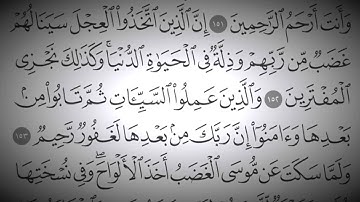 وَأَنتَ أَرْحَمُ الرَّاحِمِينَ ١٥١ إِنَّ الَّذِينَ اتَّخَذُوا الْعِجْلَ سَيَنَالُهُمْ
غَضَبٌ مِّن رَّبِّهِمْ وَذِلَّةٌ فِي الْحَيَوٰةِ الدُّنْيَا ۚ وَكَذَٰلِكَ نَجْزِي
الْمُفْتَرِينَ ١٥٢ وَالَّذِينَ عَمِلُوا السَّيِّـَٔاتِ ثُمَّ تَابُوا مِنۢ
بَعْدِهَا وَءَامَنُوٓا إِنَّ رَبَّكَ مِنۢ بَعْدِهَا لَغَفُورٌ رَّحِيمٌ ١٥٣
وَلَمَّا سَكَتَ عَن مُّوسَى الْغَضَبُ أَخَذَ الْأَلْوَاحَ ۖ وَفِي نُسْخَتِهَا